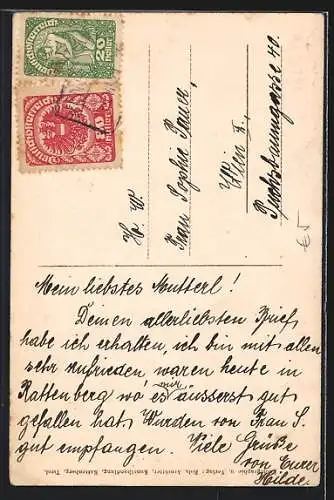 H. W.
Frau Sophie Bauer,
Wien X.
Puchsbaumgasse 40.
€5
Mein liebstes Mutterl!
Deinen allerliebsten Brief
habe ich erhalten, ich bin mit allen
sehr zufrieden waren heute in
Rattenberg wo es mir äusserst gut
gefallen hat. Wurden von Frau S.
gut empfangen. Viele Grüße
von Eurer
Hilde
Verlag Kunsthandlung, Rattenberg, Tirol.
Deutschösterreich
20
Deutschösterreich